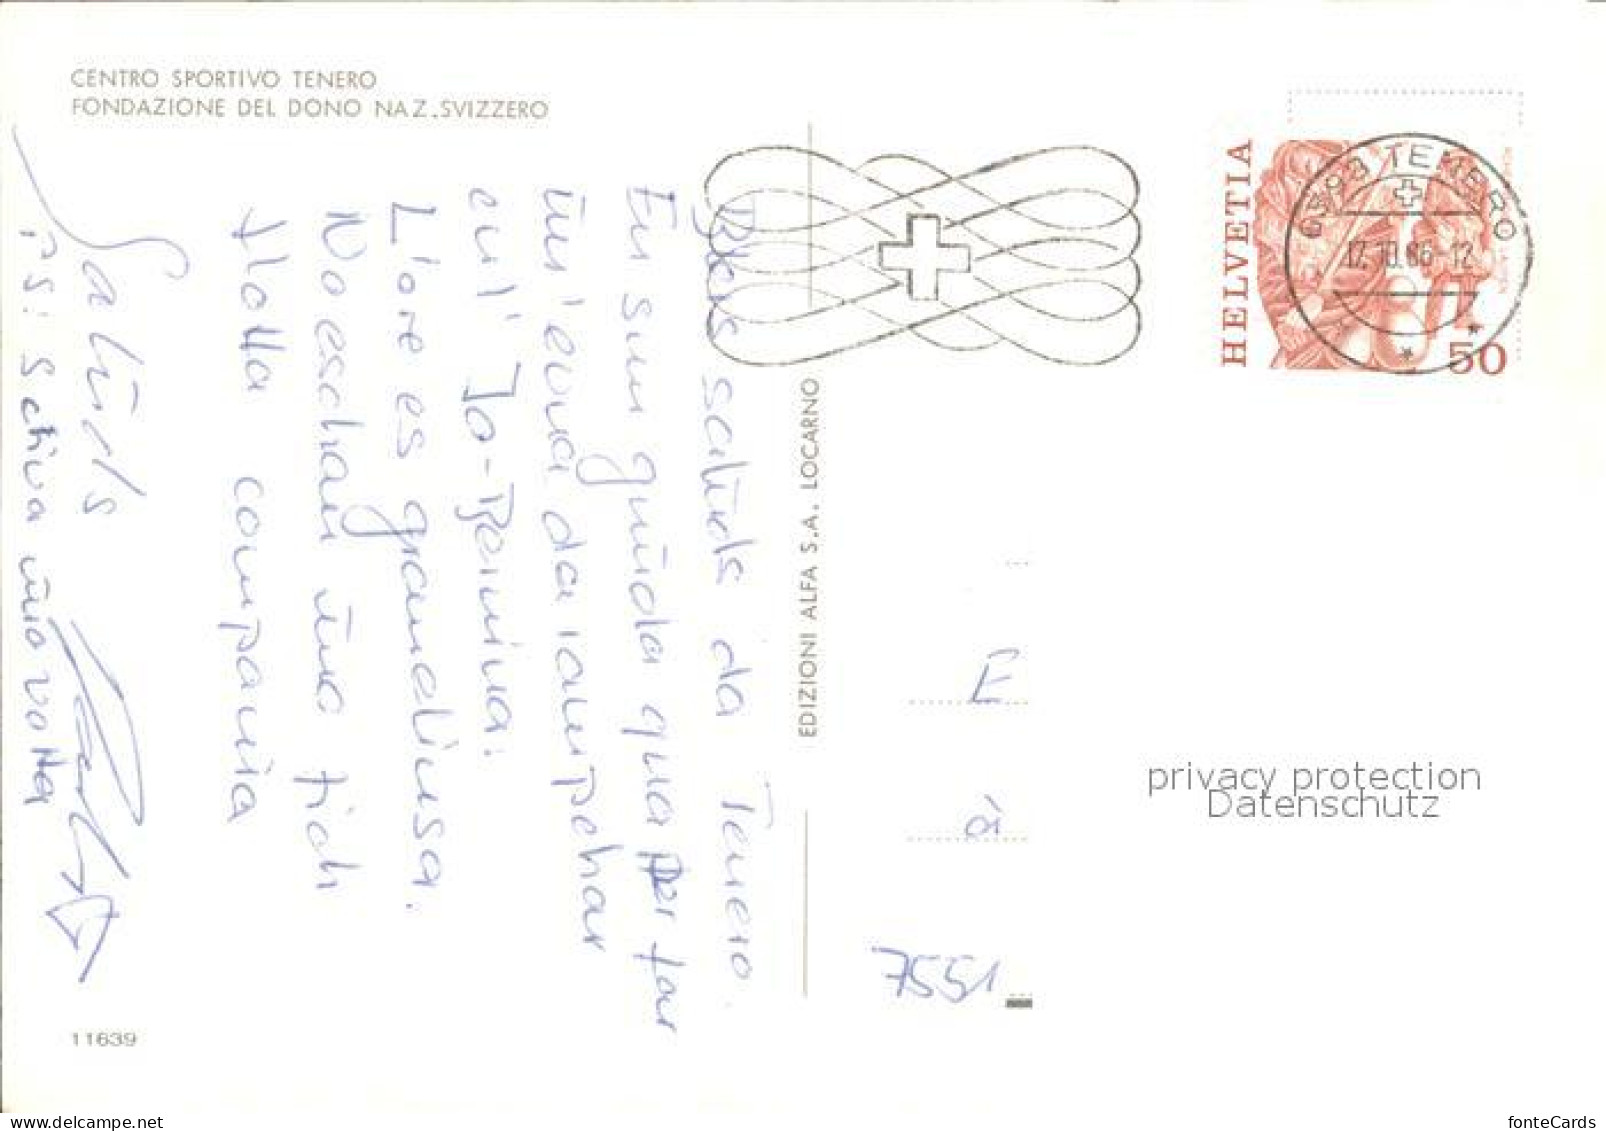 CENTRO SPORTIVO TENERO
FONDAZIONE DEL DONO NAZ.SVIZZERO
salüds da Tenero.
Eu sun qüida qua per far
ün' eivna da
cul' Jo-Bernina.
L'ore es grandiusa.
No eschan üna fich
flotta compania
Salüds
P.S: Scriva üna votta
EDIZIONI ALFA S.A. LOCARNO
HELVETIA
50
6598 TENERO
17.10.86-12
E
à
7551
privacy protection
Datenschutz
11639
www.delcampe.net
fonteCards